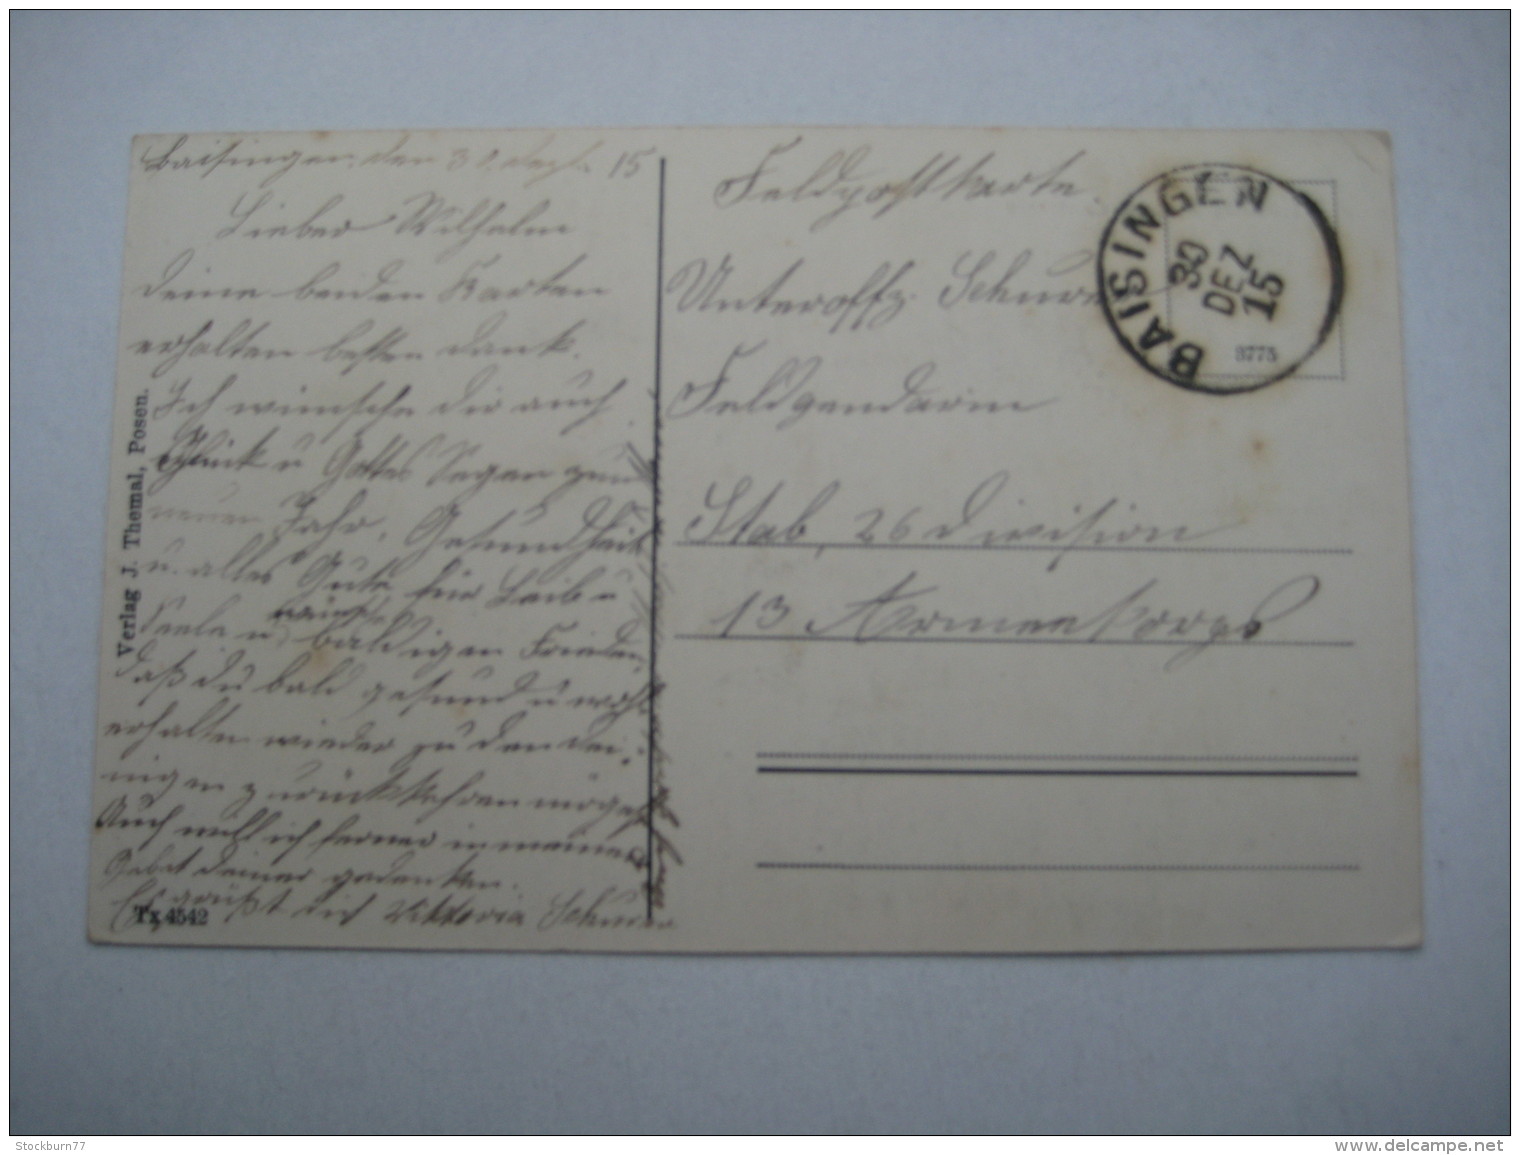 Baisingen, den 30. Dezb. 15
Lieber Wilhelm
deine beiden Karten
erhalten besten Dank.
Ich wünsche dir auch
Glück u Gottes Segen zum
neuen Jahr, Gesundheit
u. alles Gute für Leib u
Seele u wünsche
baldigen Frieden,
daß du bald gesund u wohl
erhalten wieder zu den dei-
nigen zurückkehren mögest
Auch will ich ferner in meinem
Gebet deiner gedenken.
Es grüßt dich Viktoria Schurer
Verlag J. Themal, Posen.
Tx 4542
Feldpostkarte.
Unteroffz. Schurer
Feldgendarm
Stab, 26 Division
13 Armeekorps
BAISINGEN
30
DEZ
15
3775
Stockburn77
www.delcampe.net